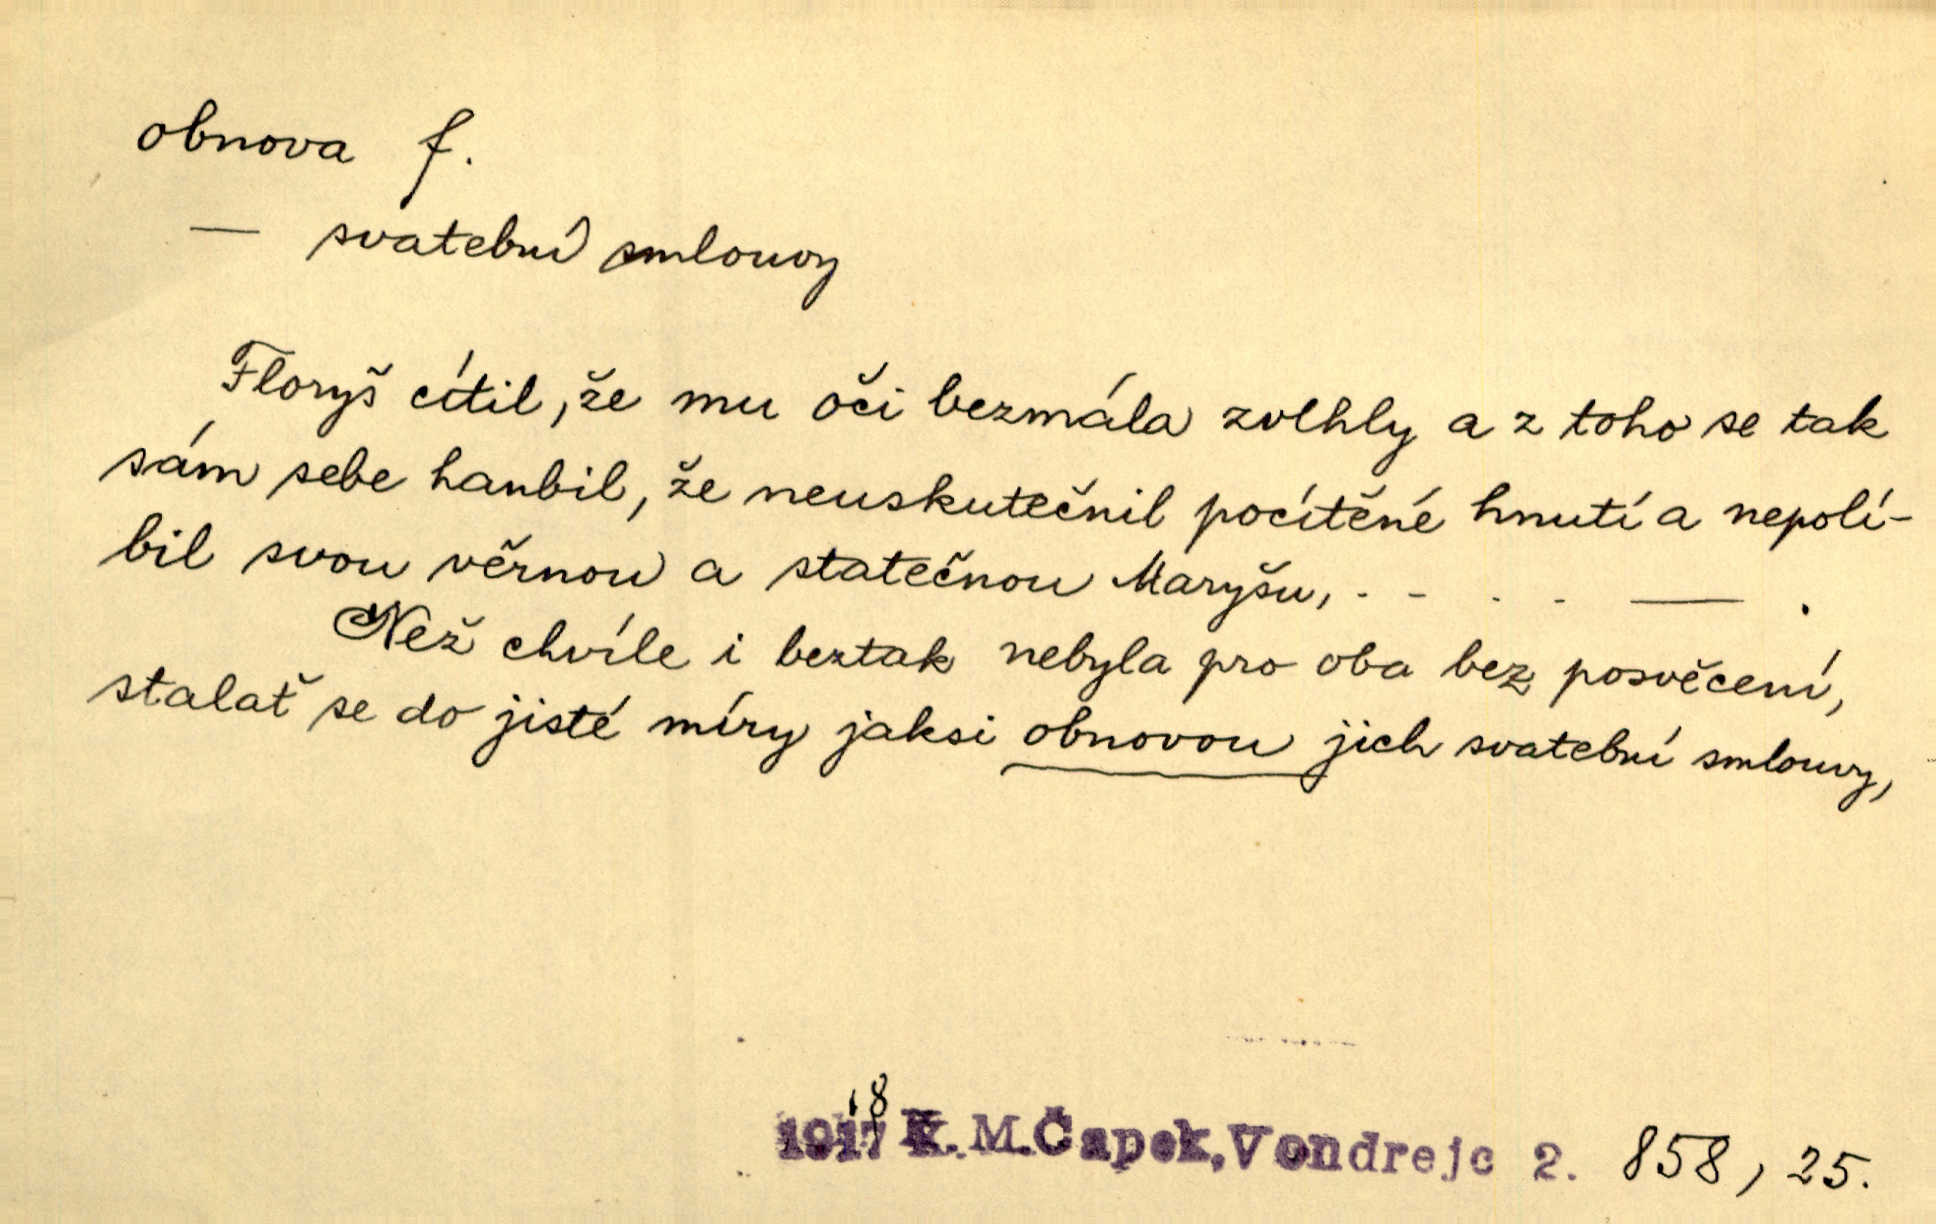 obnova f.
— svatební smlouvy
Floryš cítil, že mu oči bezmála zvlhly a z toho se tak
sám sebe hanbil, že neuskutečnil pocítěné hnutí a nepolí-
bil svou věrnou a statečnou Maryšu, . - . . — .
Než chvíle i beztak nebyla pro oba bez posvěcení,
stalať se do jisté míry jaksi obnovou jich svatební smlouvy,
18
1917 K. M. Čapek, Vondrejc 2. 858, 25.